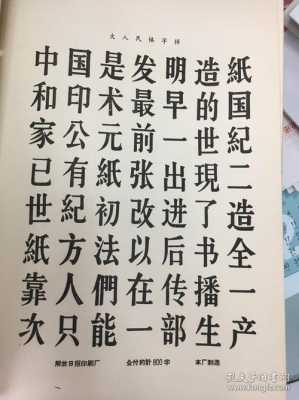 大人民体字样
中国是发明造紙
和印术最早的国
家公元前一世紀
已有紙张出現二
世紀初改进了造
紙方法以后书全
靠人們在传播一
次只能一部生产
解放日报印刷厂 全付約計800字 本厂制造
孔夫子旧书网